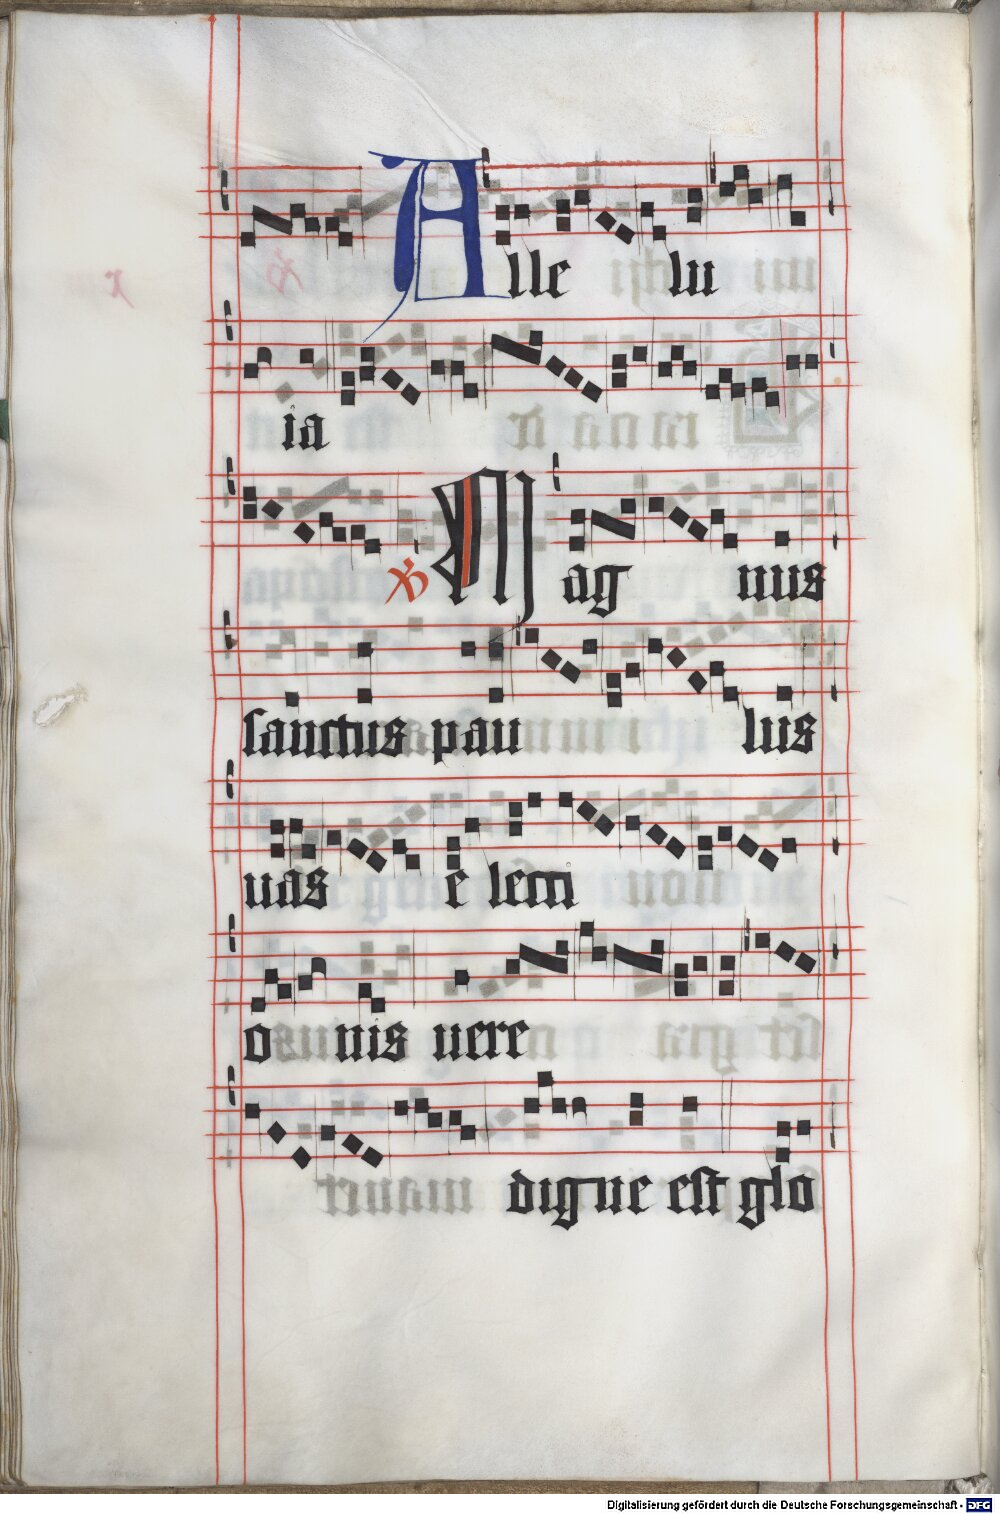 Alle lu
ia
℣ Mag nus
sanctus pau lus
uas e lecti
o nis uere
digne est glo
Digitalisierung gefördert durch die Deutsche Forschungsgemeinschaft - DFG